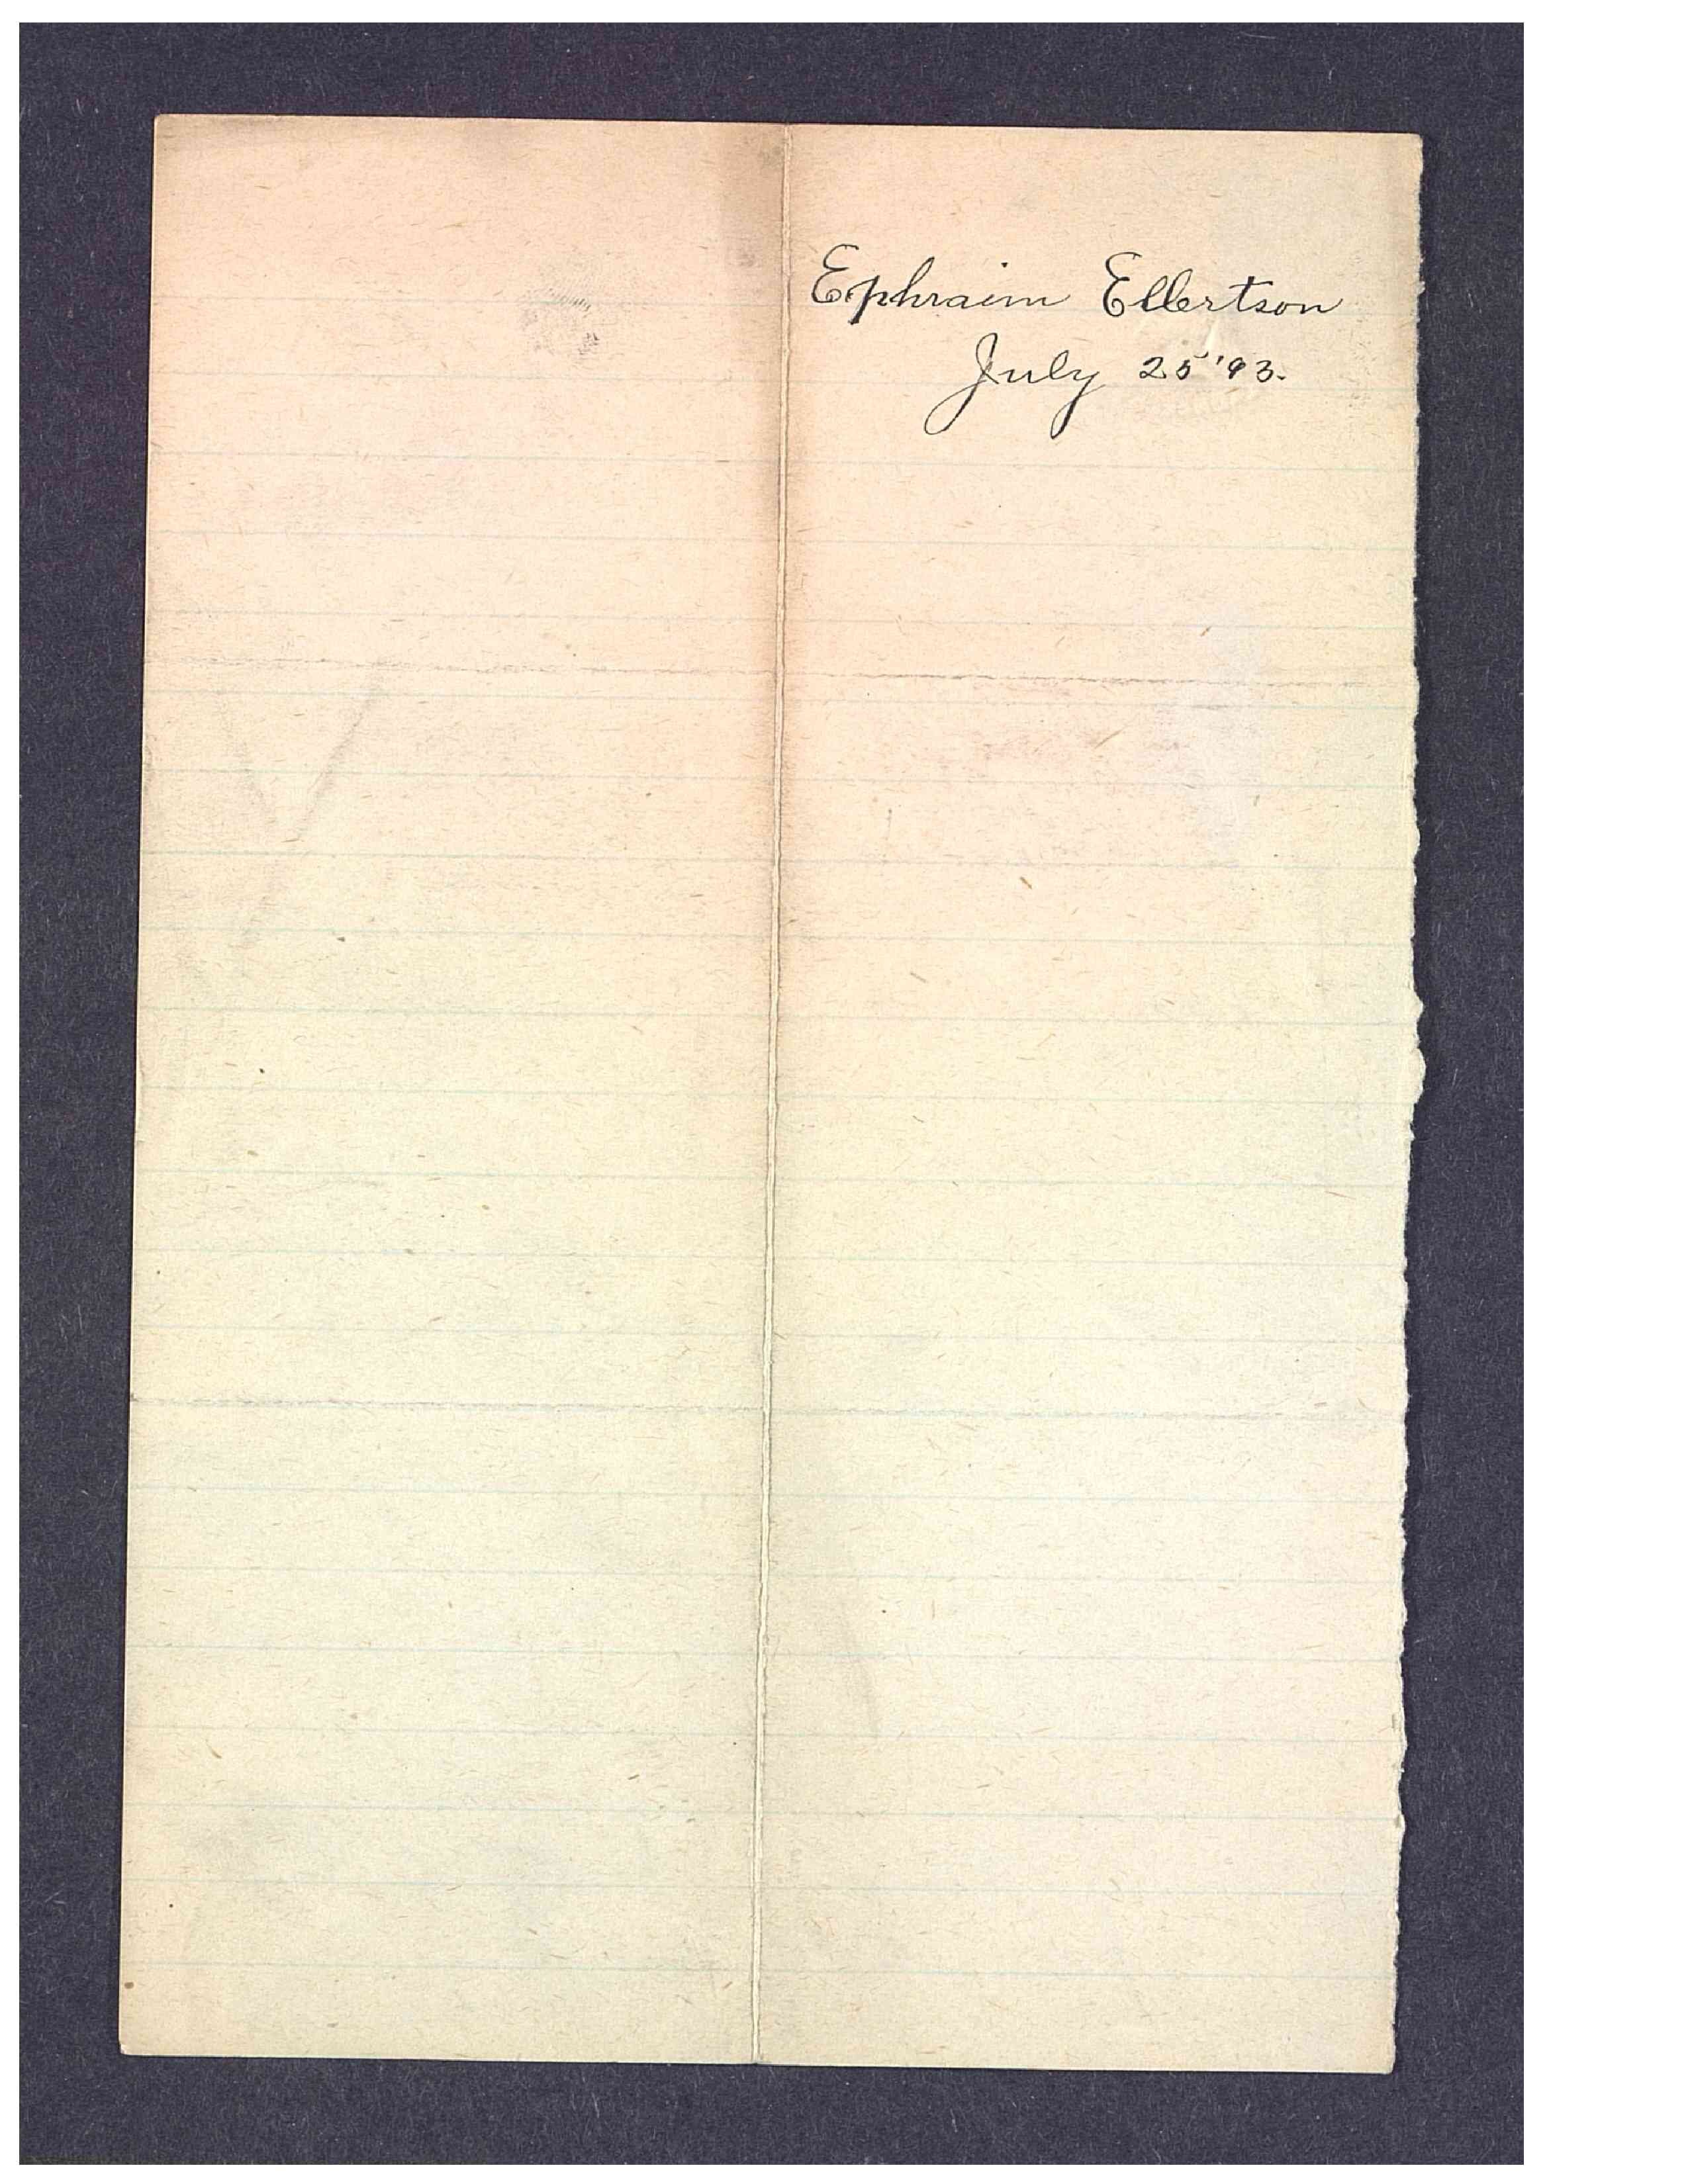 Ephraim Ellertson
July 25 '93.